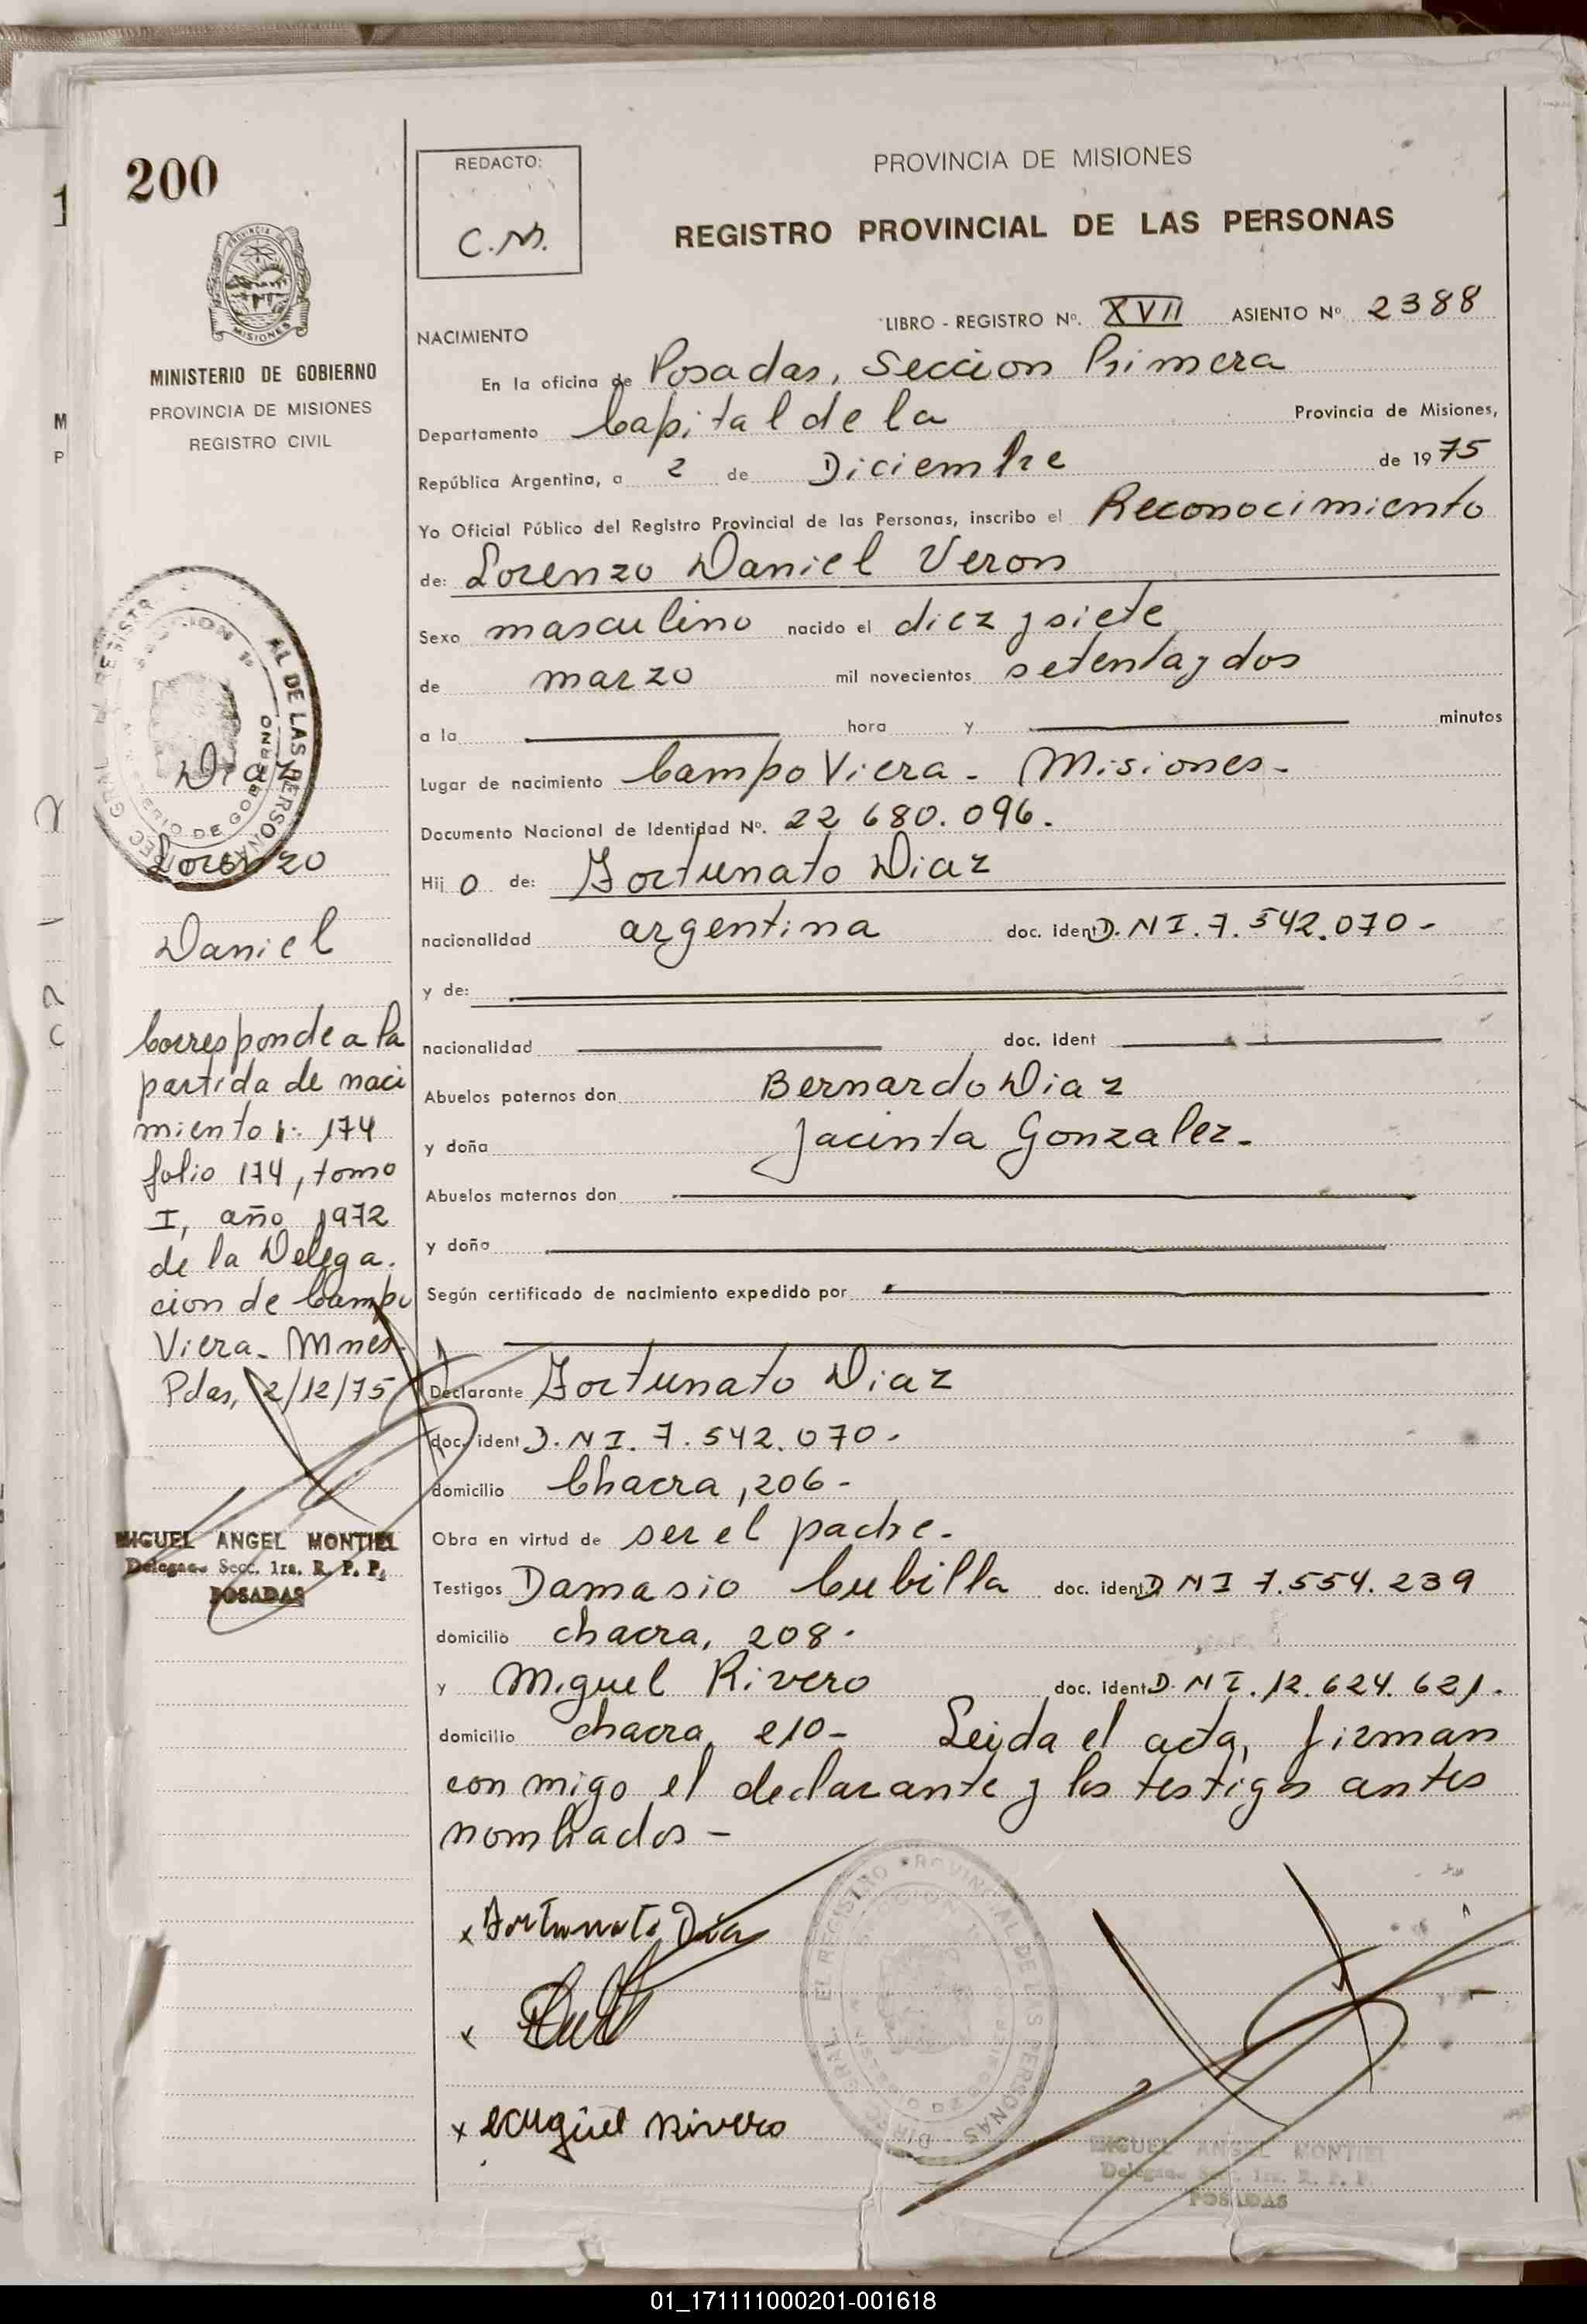 200
REDACTO:
C.M.
PROVINCIA DE MISIONES
REGISTRO PROVINCIAL DE LAS PERSONAS
MINISTERIO DE GOBIERNO
PROVINCIA DE MISIONES
REGISTRO CIVIL
NACIMIENTO
LIBRO - REGISTRO Nº. XVII ASIENTO Nº 2388
En la oficina de Posadas, Seccion Primera
Departamento Capital de la Provincia de Misiones,
República Argentina, a 2 de Diciembre de 1975
Yo Oficial Público del Registro Provincial de las Personas, inscribo el Reconocimiento
de: Lorenzo Daniel Veron
Sexo masculino nacido el diez y siete
de marzo mil novecientos setenta y dos
a la hora y minutos
Lugar de nacimiento Campo Viera - Misiones -
Documento Nacional de Identidad Nº. 22 680.096.
Hijo de: Fortunato Diaz
nacionalidad argentina doc. ident D.N I. 7.542.070 -
y de:
nacionalidad doc. ident
Abuelos paternos don Bernardo Diaz
y doña Jacinta Gonzalez -
Abuelos maternos don
y doña
Según certificado de nacimiento expedido por
Declarante Fortunato Diaz
doc. ident D.N I. 7.542.070 -
domicilio Chacra, 206 -
Obra en virtud de ser el padre -
Testigos Damasio Cubilla doc. ident D N I 7.554.239
domicilio chacra, 208 -
y Miguel Rivero doc. ident D N I. 12.624.621.
domicilio chacra 210 - Leida el acta, firman
con migo el declarante y los testigos antes
nombrados -
x Fortunato Diaz
x
x Miguel Rivero
MIGUEL ANGEL MONTIEL
Delegado Secc. 1ra. R. P. P.
POSADAS
Diaz
Lorenzo
Daniel
Corresponde a la
partida de naci
miento n: 174
folio 174, tomo
I, año 1972
de la Delega-
cion de Campo
Viera - Mnes.
Pdas, 2/12/75
MIGUEL ANGEL MONTIEL
Delegado Secc. 1ra. R. P. P.
POSADAS
01_171111000201-001618